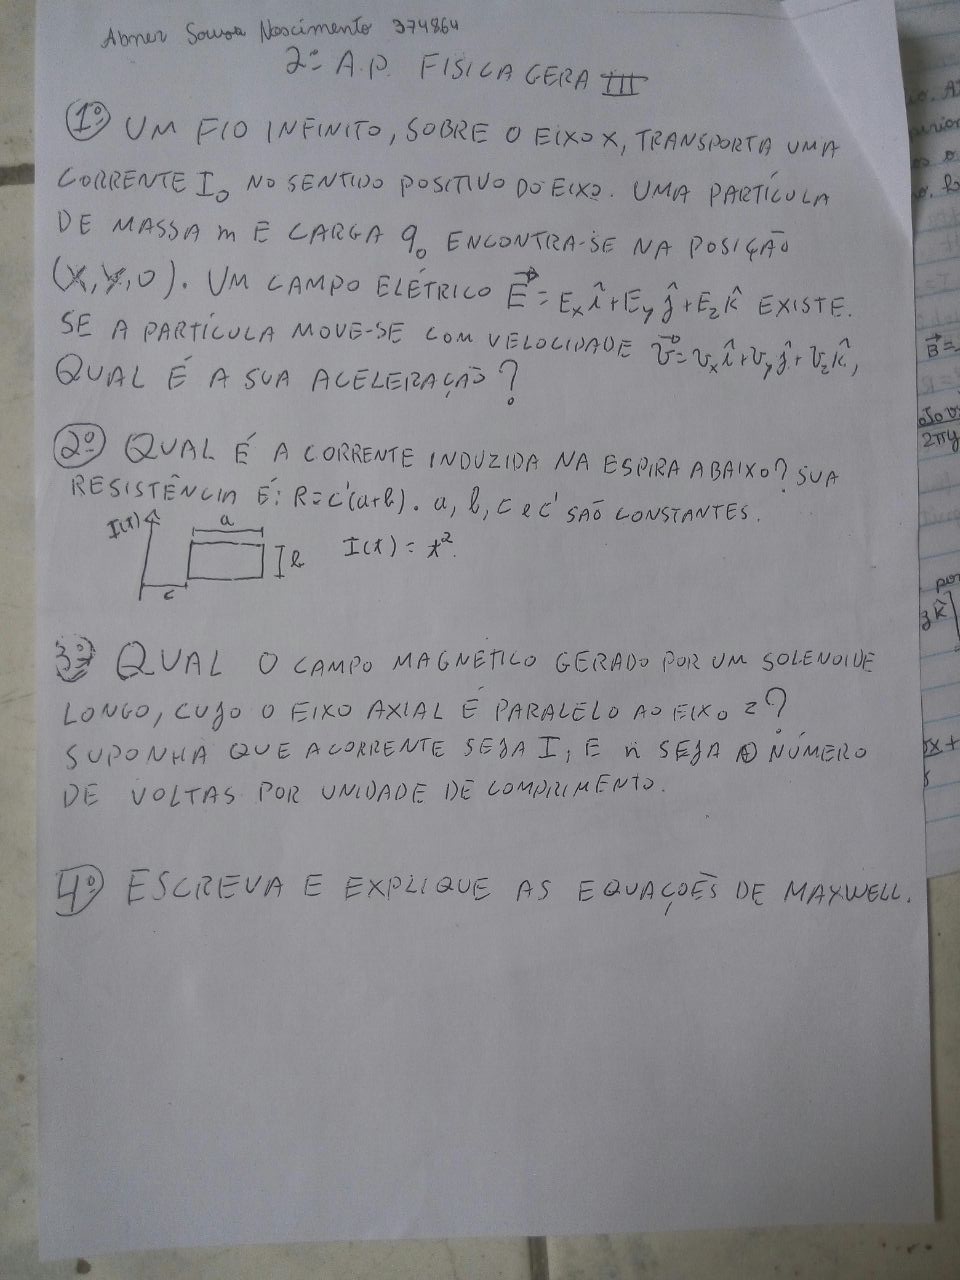 Abner Sousa Nascimento 374864
2ª A.P. FISICA GERA III
1º UM FIO INFINITO, SOBRE O EIXO X, TRANSPORTA UMA
CORRENTE I₀ NO SENTIDO POSITIVO DO EIXO. UMA PARTÍCULA
DE MASSA m E CARGA q₀ ENCONTRA-SE NA POSIÇÃO
(X,Y,0). UM CAMPO ELÉTRICO E⃗ = Eₓ î + E_y ĵ + E_z k̂ EXISTE.
SE A PARTÍCULA MOVE-SE COM VELOCIDADE v⃗ = vₓ î + v_y ĵ + v_z k̂,
QUAL É A SUA ACELERAÇÃO?
2º QUAL É A CORRENTE INDUZIDA NA ESPIRA ABAIXO? SUA
RESISTÊNCIA É: R = c'(a+b). a, b, c e c' SÃO CONSTANTES.
I(t) a b c I(t) = t².
3º QUAL O CAMPO MAGNÉTICO GERADO POR UM SOLENOIDE
LONGO, CUJO O EIXO AXIAL É PARALELO AO EIXO z?
SUPONHA QUE A CORRENTE SEJA I, E n SEJA O NÚMERO
DE VOLTAS POR UNIDADE DE COMPRIMENTO.
4º ESCREVA E EXPLIQUE AS EQUAÇÕES DE MAXWELL.
B⃗ =
2πy
por